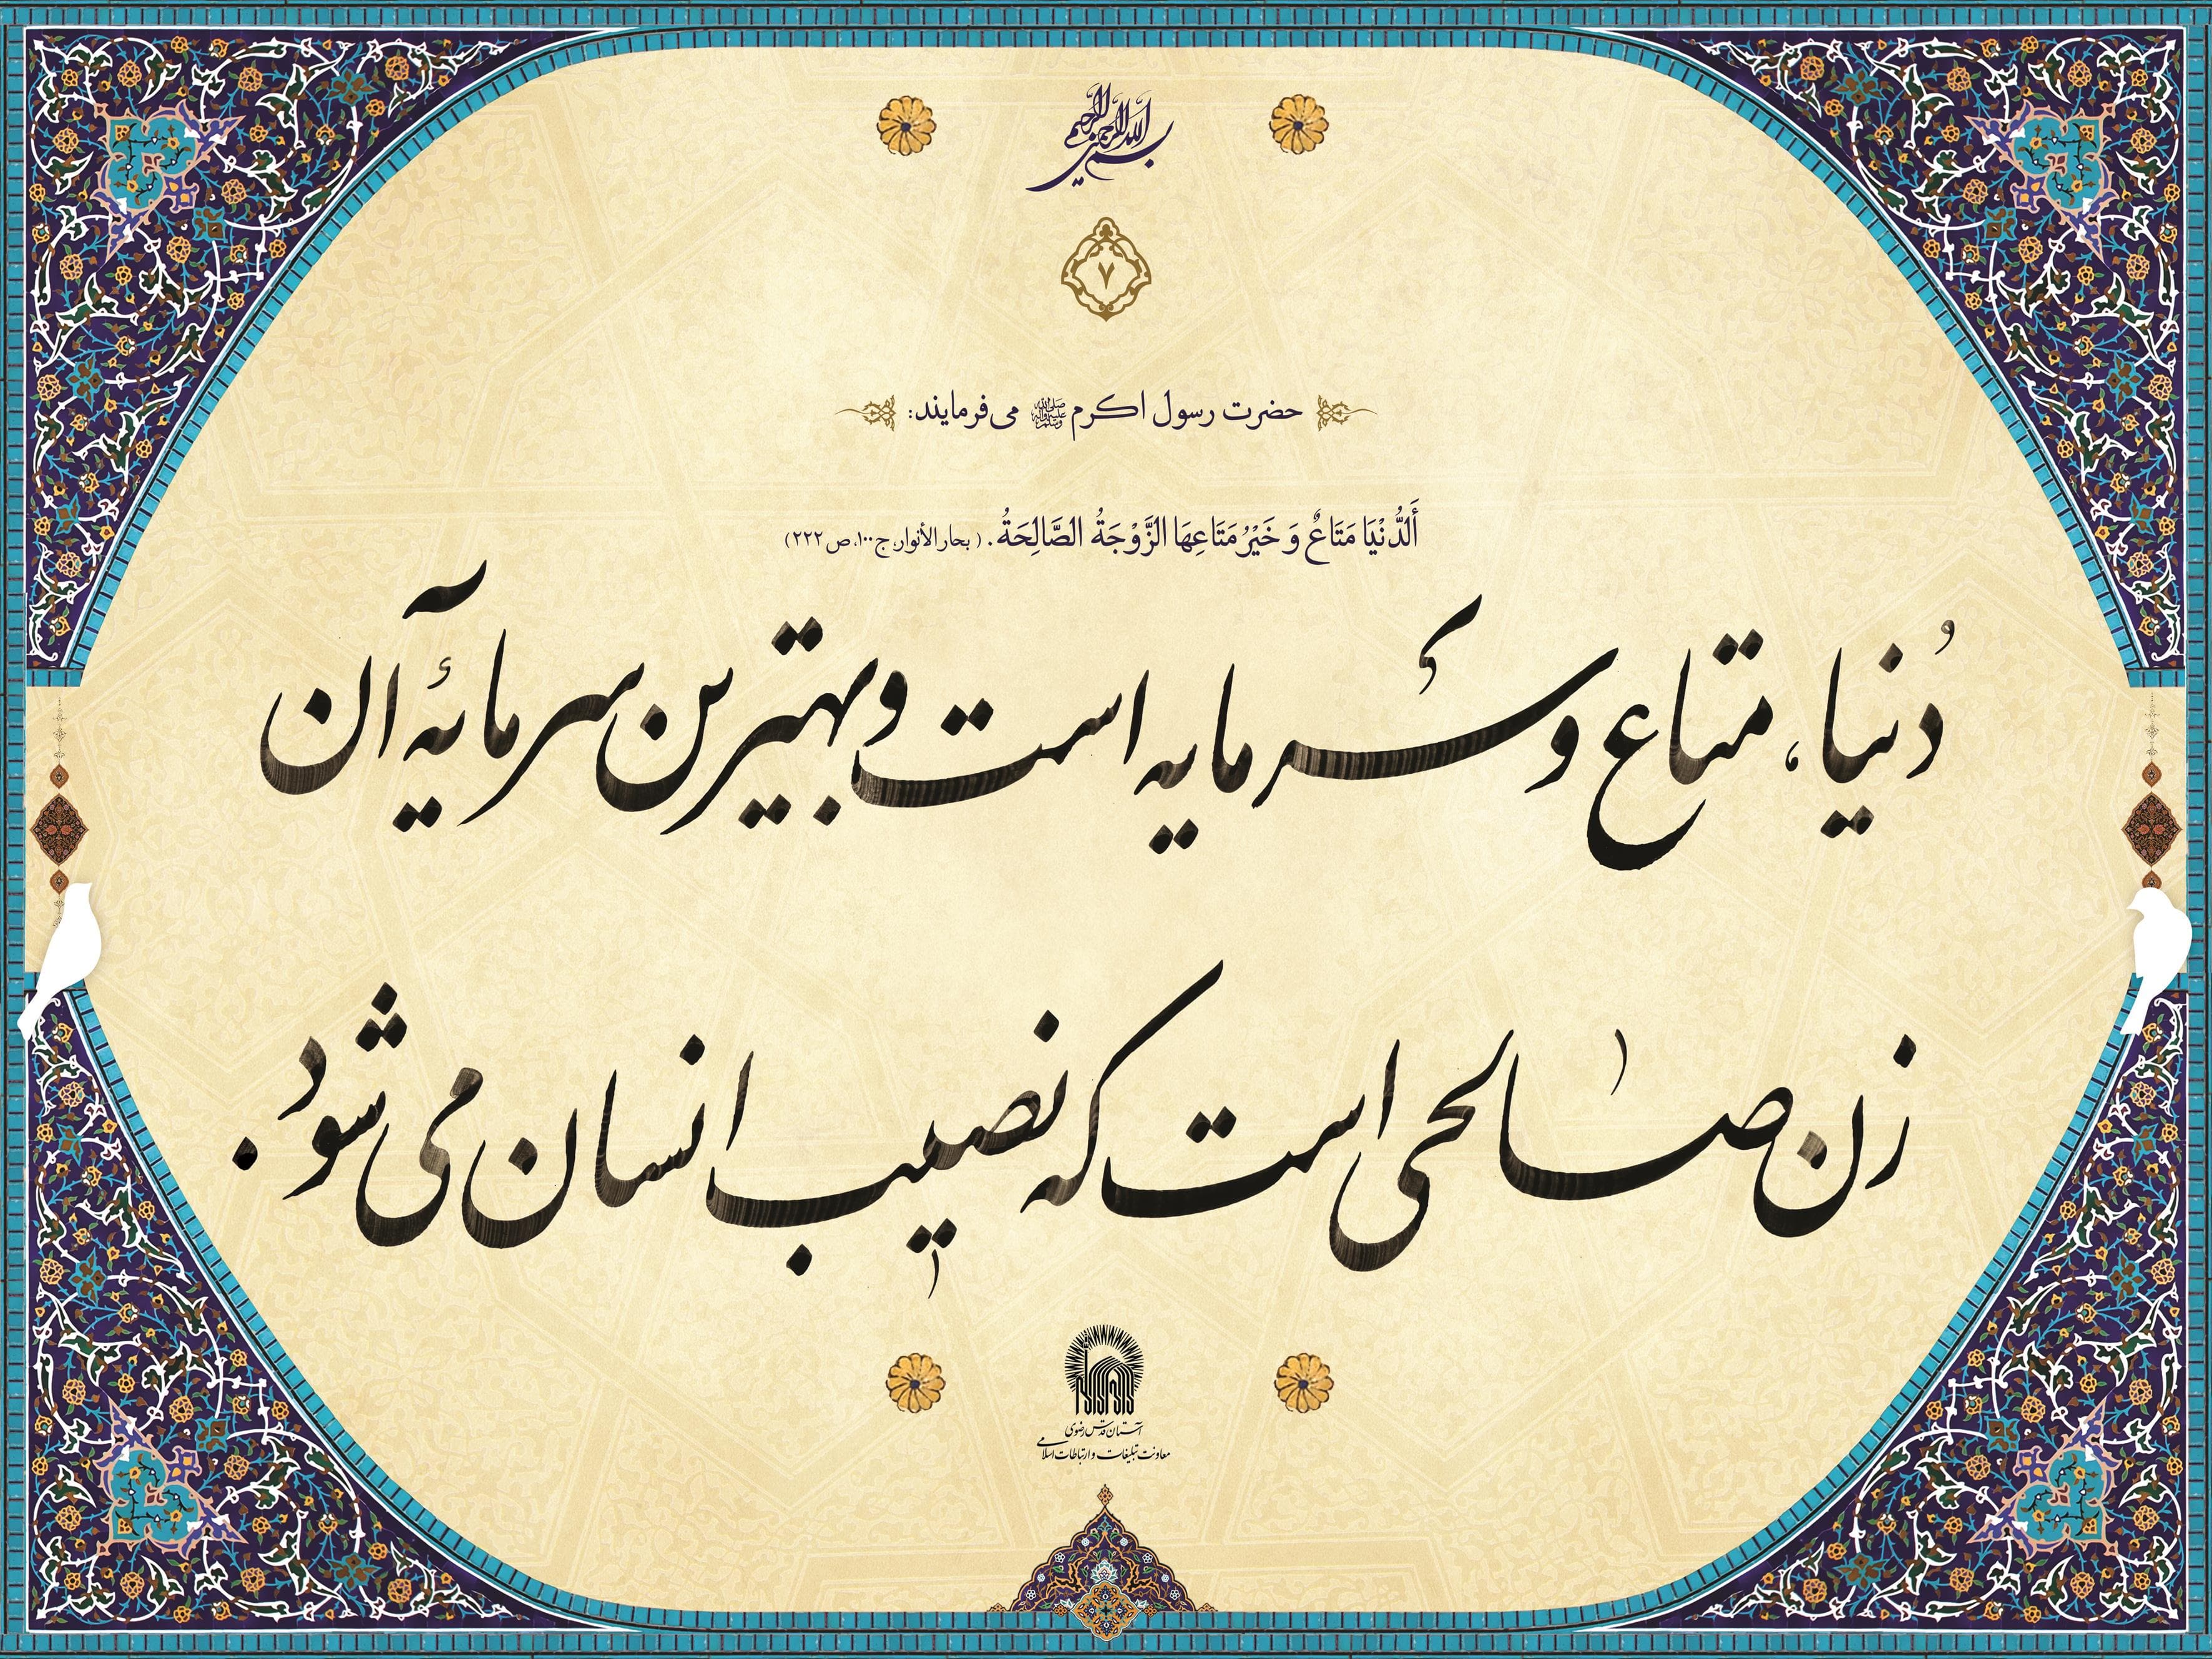 بسم الله الرحمن الرحیم
۷
حضرت رسول اکرم ﷺ می‌فرمایند:
أَلدُّنْیَا مَتَاعٌ وَ خَیْرُ مَتَاعِهَا الزَّوْجَةُ الصَّالِحَةُ. (بحار الأنوار، ج۱۰۰، ص۲۲۲)
دُنیا، متاع و سرمایه است و بهترین سرمایهٔ آن
زن صالحی است که نصیب انسان می‌شود.
آستان قدس رضوی
معاونت تبلیغات و ارتباطات اسلامی